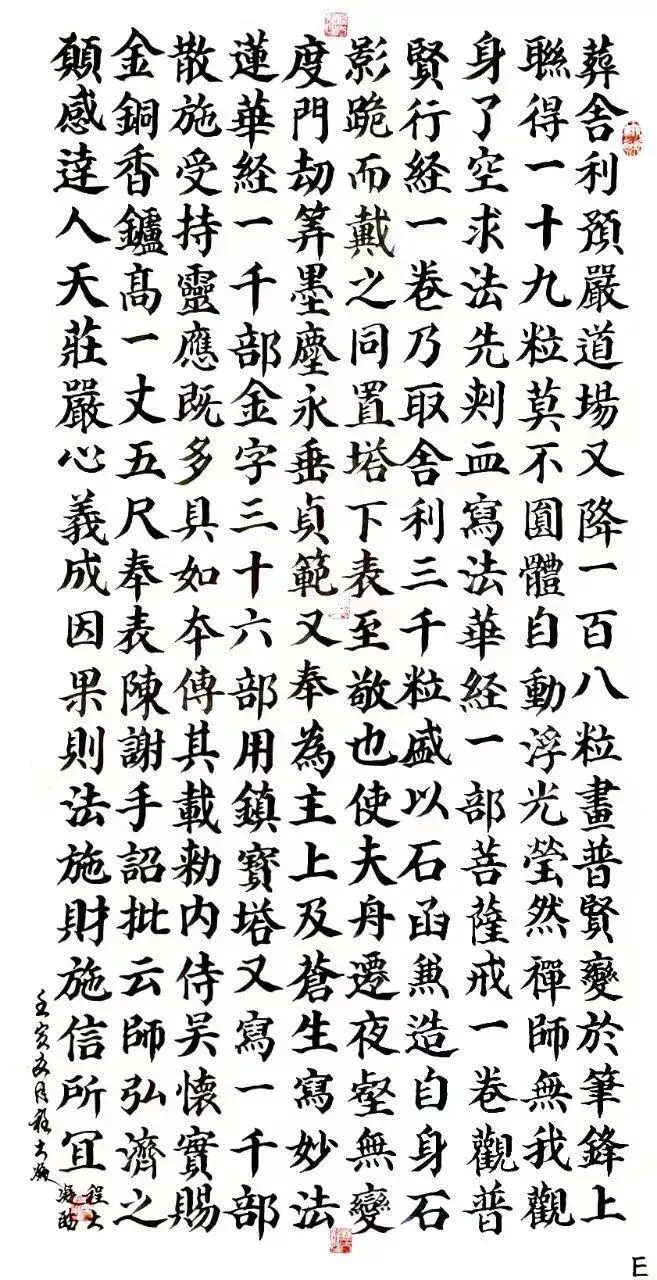 葬舍利預嚴道場又降一百八粒畫普賢變於筆鋒上
聮得一十九粒莫不圓體自動浮光瑩然禪師無我觀
身了空求法先刾血寫法華経一部菩薩戒一卷觀普
賢行経一卷乃取舍利三千粒盛以石函兼造自身石
影跪而戴之同置塔下表至敬也使夫舟遷夜壑無變
度門劫筭墨塵永垂貞範又奉為主上及蒼生寫妙法
蓮華経一千部金字三十六部用鎮寶塔又寫一千部
散施受持靈應既多具如本傳其載勑内侍吴懷實賜
金銅香鑪高一丈五尺奉表陳謝手詔批云師弘濟之
願感達人天莊嚴心義成因果則法施財施信所冝
壬寅
E